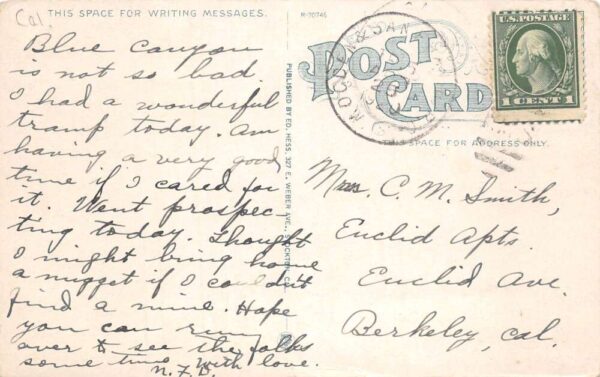 Cal.
THIS SPACE FOR WRITING MESSAGES.
R-70746
Blue Canyon
is not so bad.
I had a wonderful
tramp today. Am
having a very good
time if I cared for
it. Went prospec-
ting today. Thought
I might bring home
a nugget if I couldn't
find a mine. Hope
you can run
over to see the folks
some time with love.
N.F.D.
PUBLISHED BY ED. HESS, 327 E. WEBER AVE., STOCKTON,
POST
CARD
OGDEN & SAN
U.S. POSTAGE
1 CENT 1
THIS SPACE FOR ADDRESS ONLY.
C. M. Smith,
Euclid Apts.
Euclid Ave.
Berkeley, Cal.